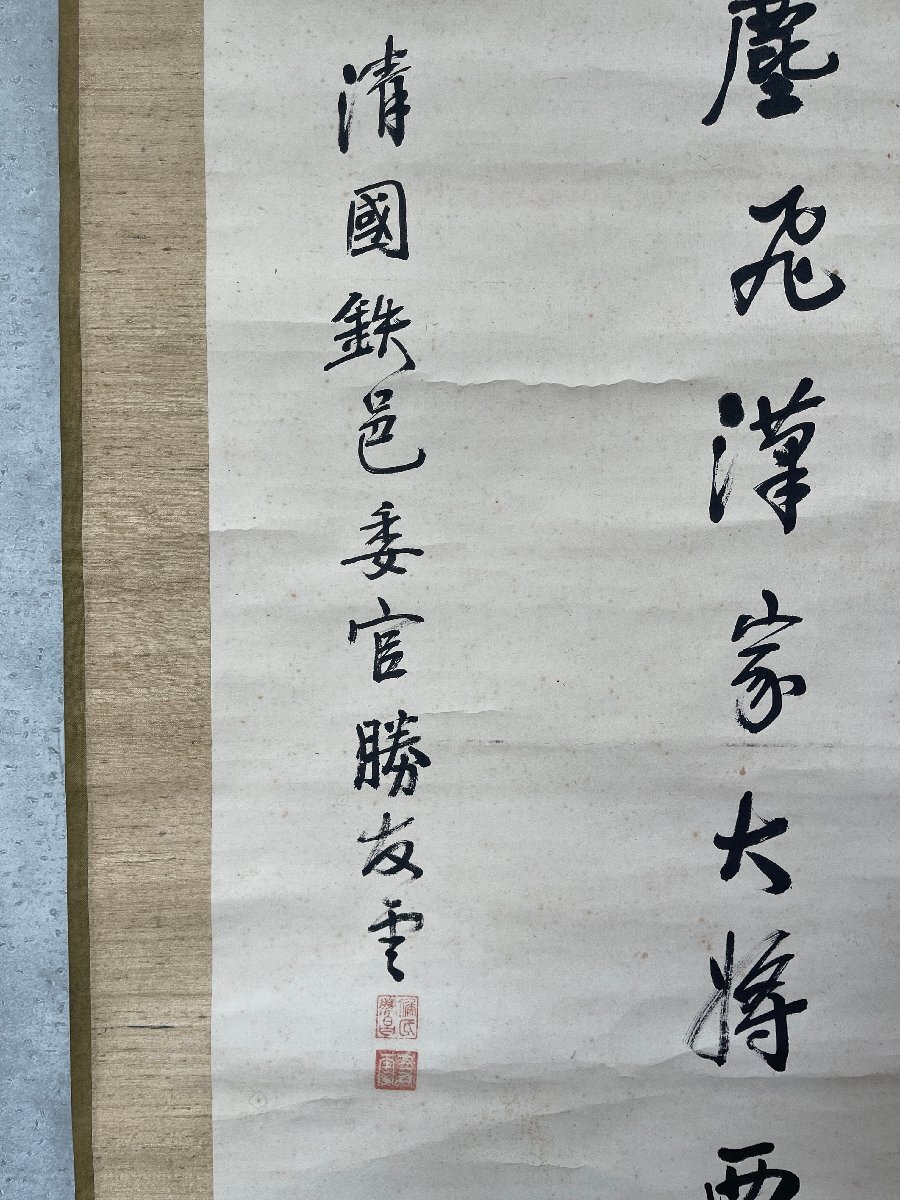 塵飛漢家大将西
清國鉄邑委官勝友雲